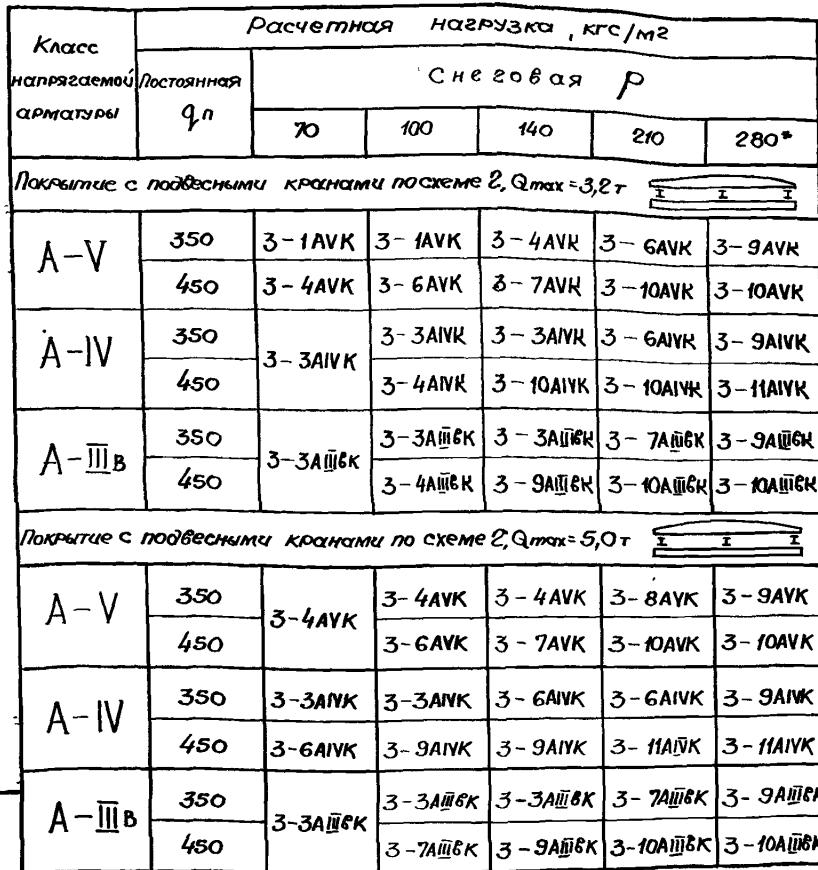 Класс напрягаемой арматуры
Расчетная нагрузка, кгс/м2
Постоянная qп
Снеговая P
70 100 140 210 280*
Покрытие с подвесными кранами по схеме 2, Qmax=3,2т
A-V
350 3-1AVK 3-1AVK 3-4AVK 3-6AVK 3-9AVK
450 3-4AVK 3-6AVK 3-7AVK 3-10AVK 3-10AVK
A-IV
3-3AIVK
350 3-3AIVK 3-3AIVK 3-6AIVK 3-9AIVK
450 3-4AIVK 3-10AIVK 3-10AIVK 3-11AIVK
A-IIIв
3-3AIIIвK
350 3-3AIIIвK 3-3AIIIвK 3-7AIIIвK 3-9AIIIвK
450 3-4AIIIвK 3-9AIIIвK 3-10AIIIвK 3-10AIIIвK
Покрытие с подвесными кранами по схеме 2, Qmax=5,0т
A-V
3-4AVK
350 3-4AVK 3-4AVK 3-8AVK 3-9AVK
450 3-6AVK 3-7AVK 3-10AVK 3-10AVK
A-IV
350 3-3AIVK 3-3AIVK 3-6AIVK 3-6AIVK 3-9AIVK
450 3-6AIVK 3-9AIVK 3-9AIVK 3-11AIVK 3-11AIVK
A-IIIв
3-3AIIIвK
350 3-3AIIIвK 3-3AIIIвK 3-7AIIIвK 3-9AIIIвK
450 3-7AIIIвK 3-9AIIIвK 3-10AIIIвK 3-10AIIIвK